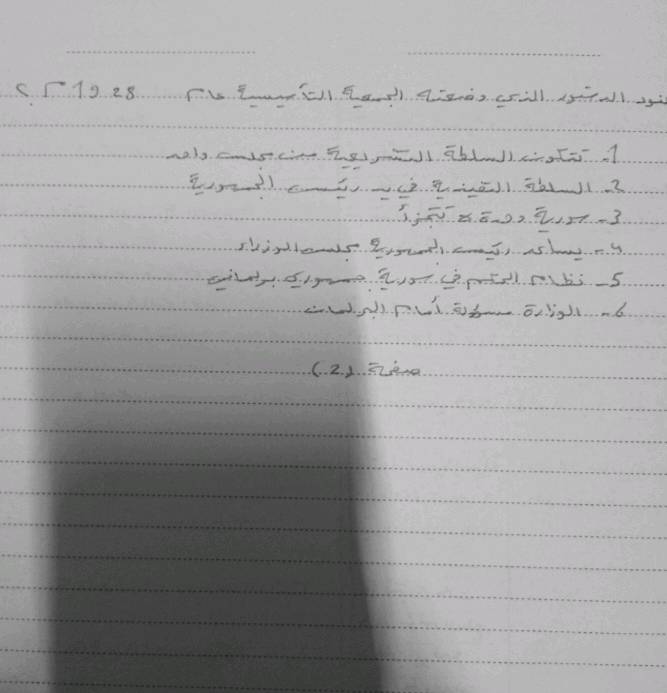 بنود الدستور الذي وضعته الجمعية التأسيسية عام 1928 م ؟
1- تتكون السلطة التشريعية من مجلس واحد
2- السلطة التنفيذية في يد رئيس الجمهورية
3- سورية وحدة لا تتجزأ
4- يساعد رئيس الجمهورية مجلس الوزراء
5- نظام الحكم في سورية جمهوري برلماني
6- الوزارة مسؤولة أمام البرلمان
صفحة (2)